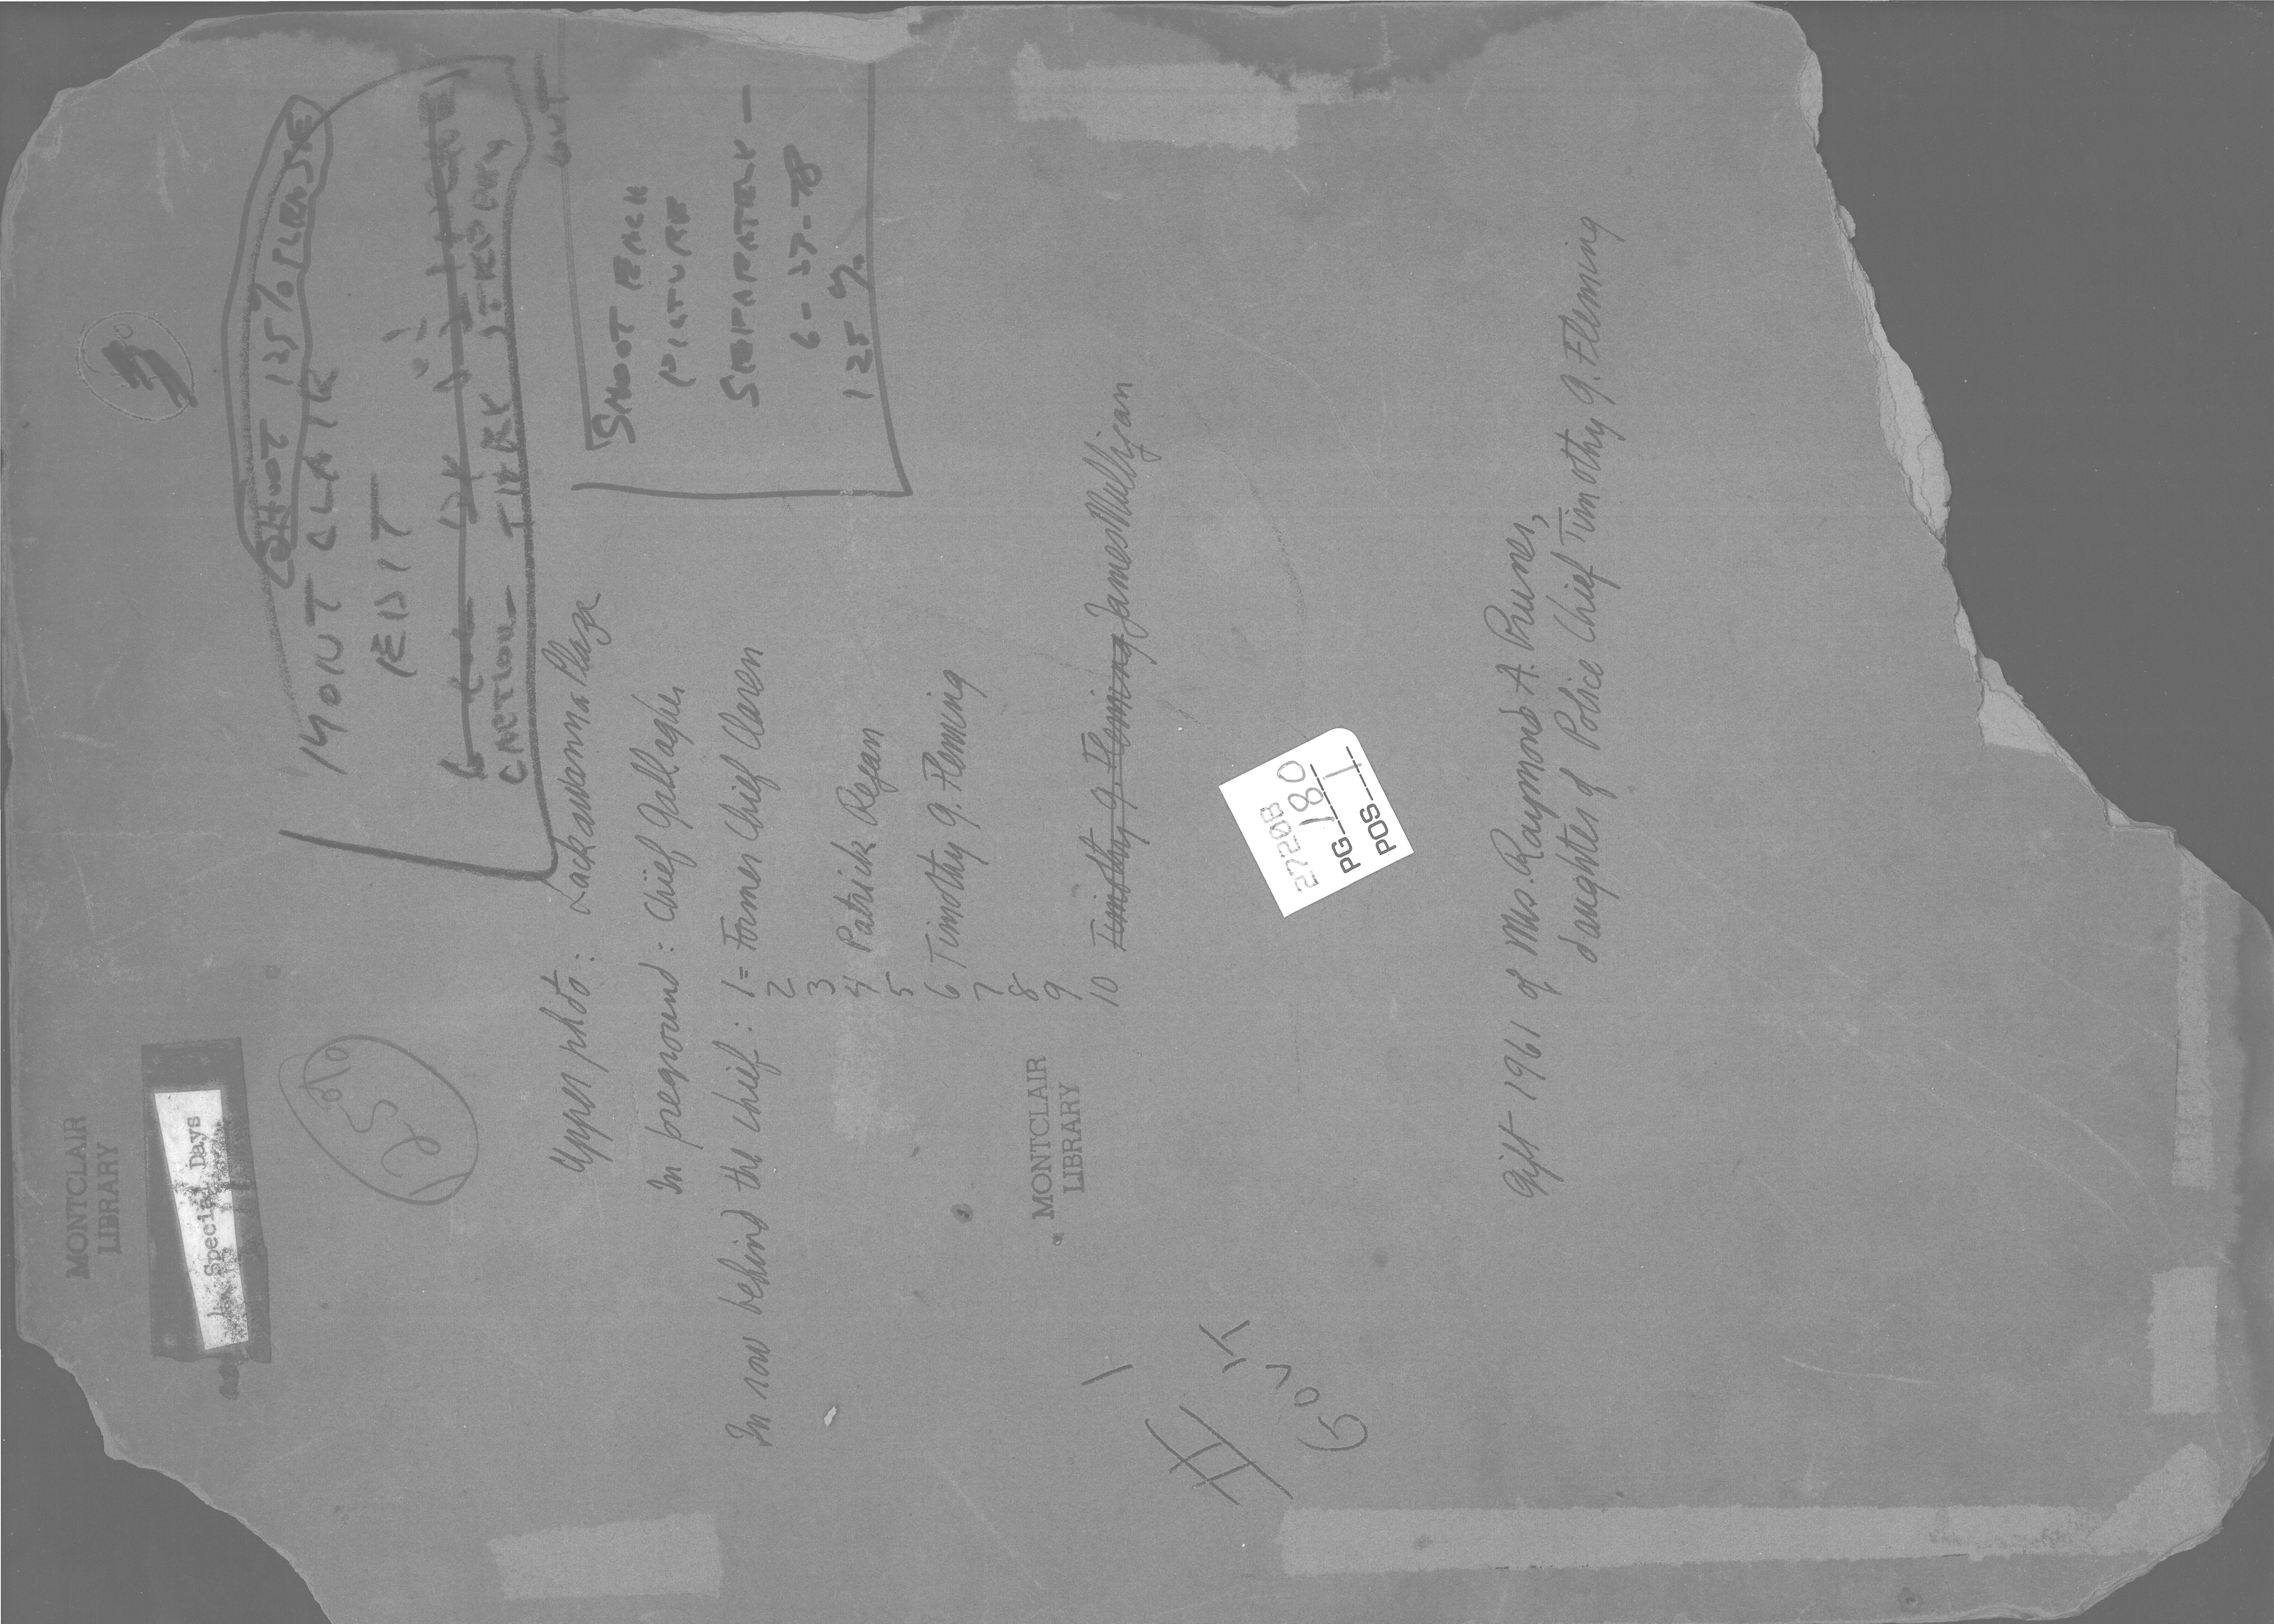 MONTCLAIR
LIBRARY
Special Days
125%
3
SHOOT 125% PLEASE
MONTCLAIR
EDIT
CAPTION -
CONT
SHOOT EACH
PICTURE
SEPARATELY -
6-27-78
125%
Upper photo: Lackawanna Plaza
In foreground: Chief Gallagher
In row behind the chief: 1 = Former Chief Claren
2
3
4 Patrick Regan
5
6 Timothy G. Fleming
7
8
9
10 Timothy G. Fleming James Mulligan
MONTCLAIR
LIBRARY
27208
PG 180
POS 1
# 1
Gift 1961 of Mrs. Raymond A. Pruner,
daughter of Police Chief Timothy G. Fleming